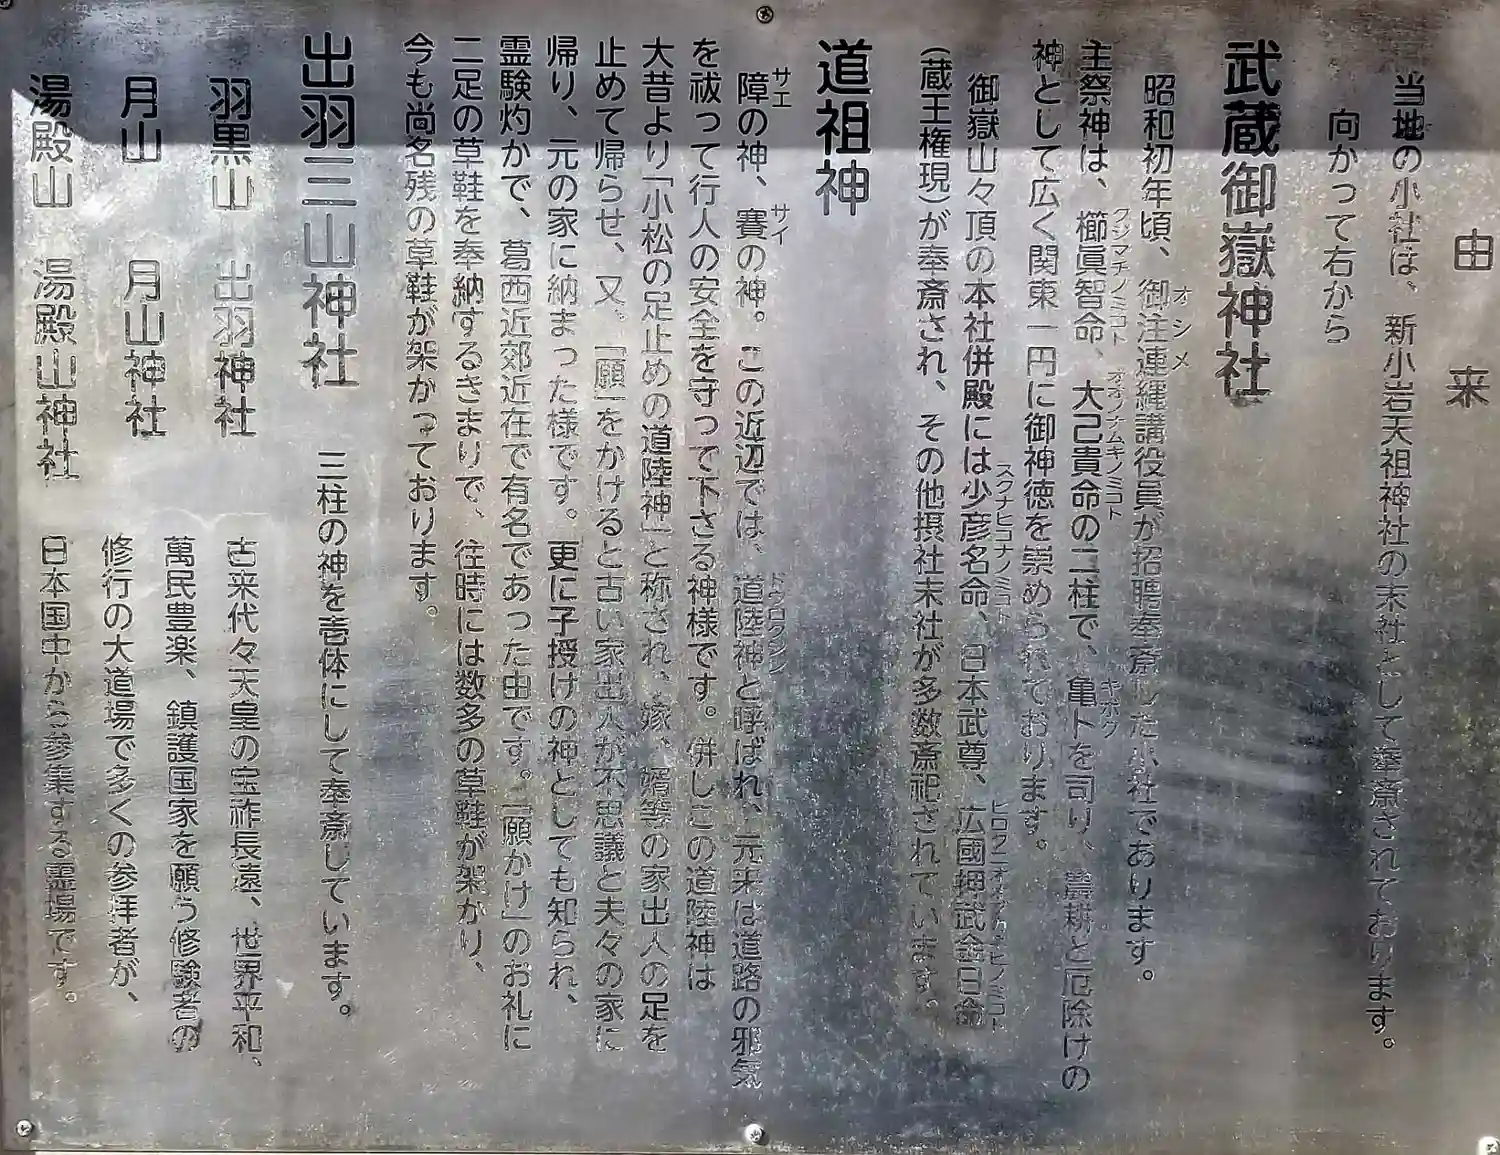 由来
当地の小社は、新小岩天祖神社の末社として奉斎されております。
向かって右から
武蔵御嶽神社
昭和初年頃、御注連縄講役員が招聘奉斎した小社であります。
オシメ
主祭神は、櫛眞智命、大己貴命の二柱で、亀卜を司り、農耕と厄除けの
クシマチノミコト オオナムキノミコト キボク
神として広く関東一円に御神徳を崇められております。
御嶽山々頂の本社併殿には少彦名命、日本武尊、広國押武金日命
スクナヒコナノミコト
(蔵王権現)が奉斎され、その他摂社末社が多数斎祀されています。
道祖神
障の神、賽の神。この近辺では、道陸神と呼ばれ、元来は道路の邪気
サエ サイ ドウロクジン
を祓って行人の安全を守って下さる神様です。併しこの道陸神は
大昔より「小松の足止めの道陸神」と称され、嫁、婿等の家出人の足を
止めて帰らせ、又、「願」をかけると古い家出人が不思議と夫々の家に
帰り、元の家に納まった様です。更に子授けの神としても知られ、
霊験灼かで、葛西近郊近在で有名であった由です。「願かけ」のお礼に
二足の草鞋を奉納するきまりで、往時には数多の草鞋が架かり、
今も尚名残の草鞋が架かっております。
出羽三山神社 三柱の神を壱体にして奉斎しています。
羽黒山 出羽神社 古来代々天皇の宝祚長遠、世界平和、
月山 月山神社 萬民豊楽、鎮護国家を願う修験者の
修行の大道場で多くの参拝者が、
湯殿山 湯殿山神社 日本国中から参集する霊場です。